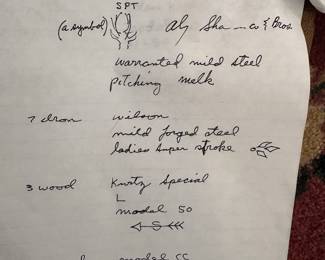 SPT
(a symbol) Aly Sha — co & Bros.
warranted mild steel
pitching
7 iron wilson
mild forged steel
ladies super stroke
3 wood Special
L
model 50
S
model CC